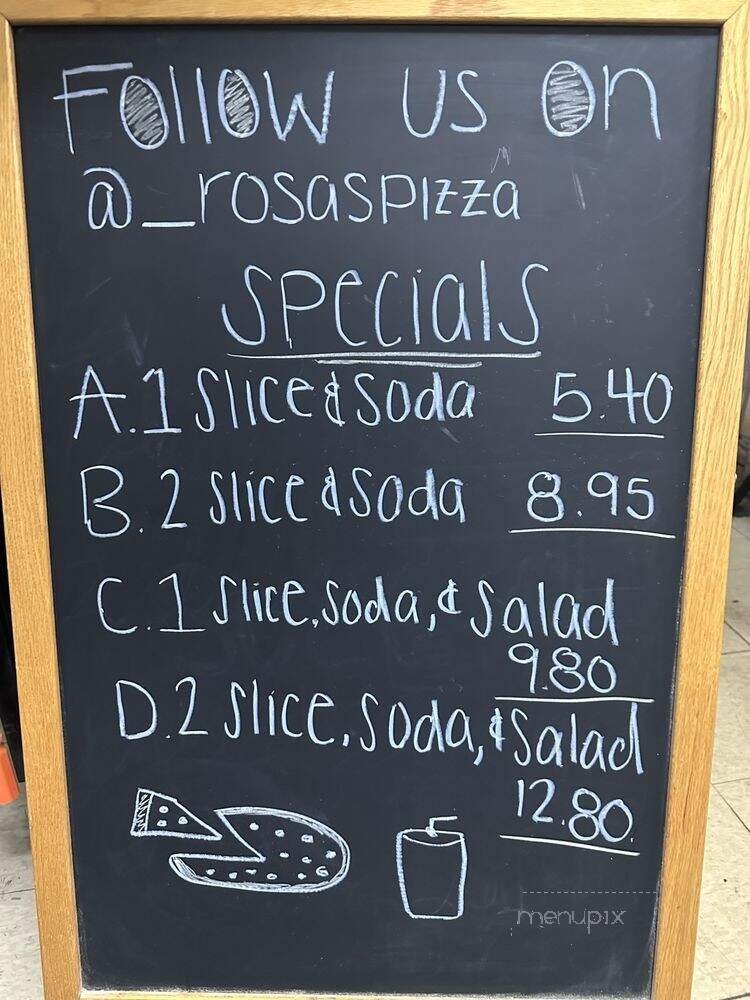 Follow us on
@_rosaspizza
specials
A. 1 slice & soda 5.40
B. 2 slice & soda 8.95
C. 1 slice, soda, & salad
9.80
D. 2 slice, soda, & salad
12.80
menupix